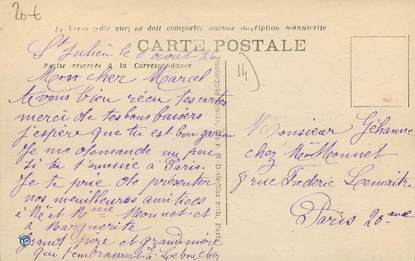 20€
Le Verso (côté vue) ne doit comporter aucune inscription manuscrite
CARTE POSTALE
Partie réservée à la Correspondance
14
St Julien le 6 août 26
Mon cher Marcel
Avons bien récu tes cartes
merci de tes bons baisers
j'espère que tu est bon garçon
Je me demande un peu
si tu t'ennuie à Paris.
Je te prie de présenter
nos meilleures amitiées
à Mr et Mme Monnet et
à Marguerite
Grand père et grand mère
qui t'embrassent
Monsieur Jéhanne
chez Mr Monnet
8 rue Frédéric Lemaitre
Paris 20 eme